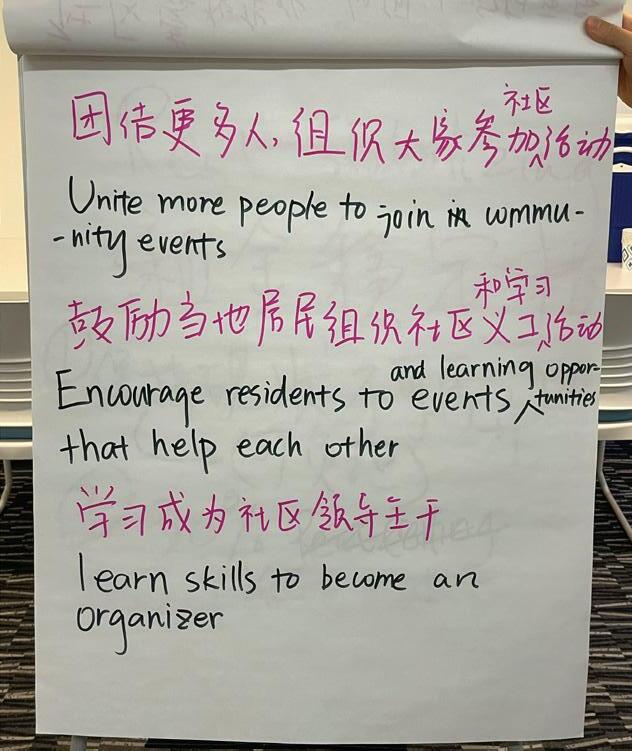 团结更多人，组织大家参加社区活动
Unite more people to join in commu-
-nity events
鼓励当地居民组织社区义工和学习活动
Encourage residents to events and learning oppor-tunities
that help each other
学习成为社区领导主干
learn skills to become an
organizer